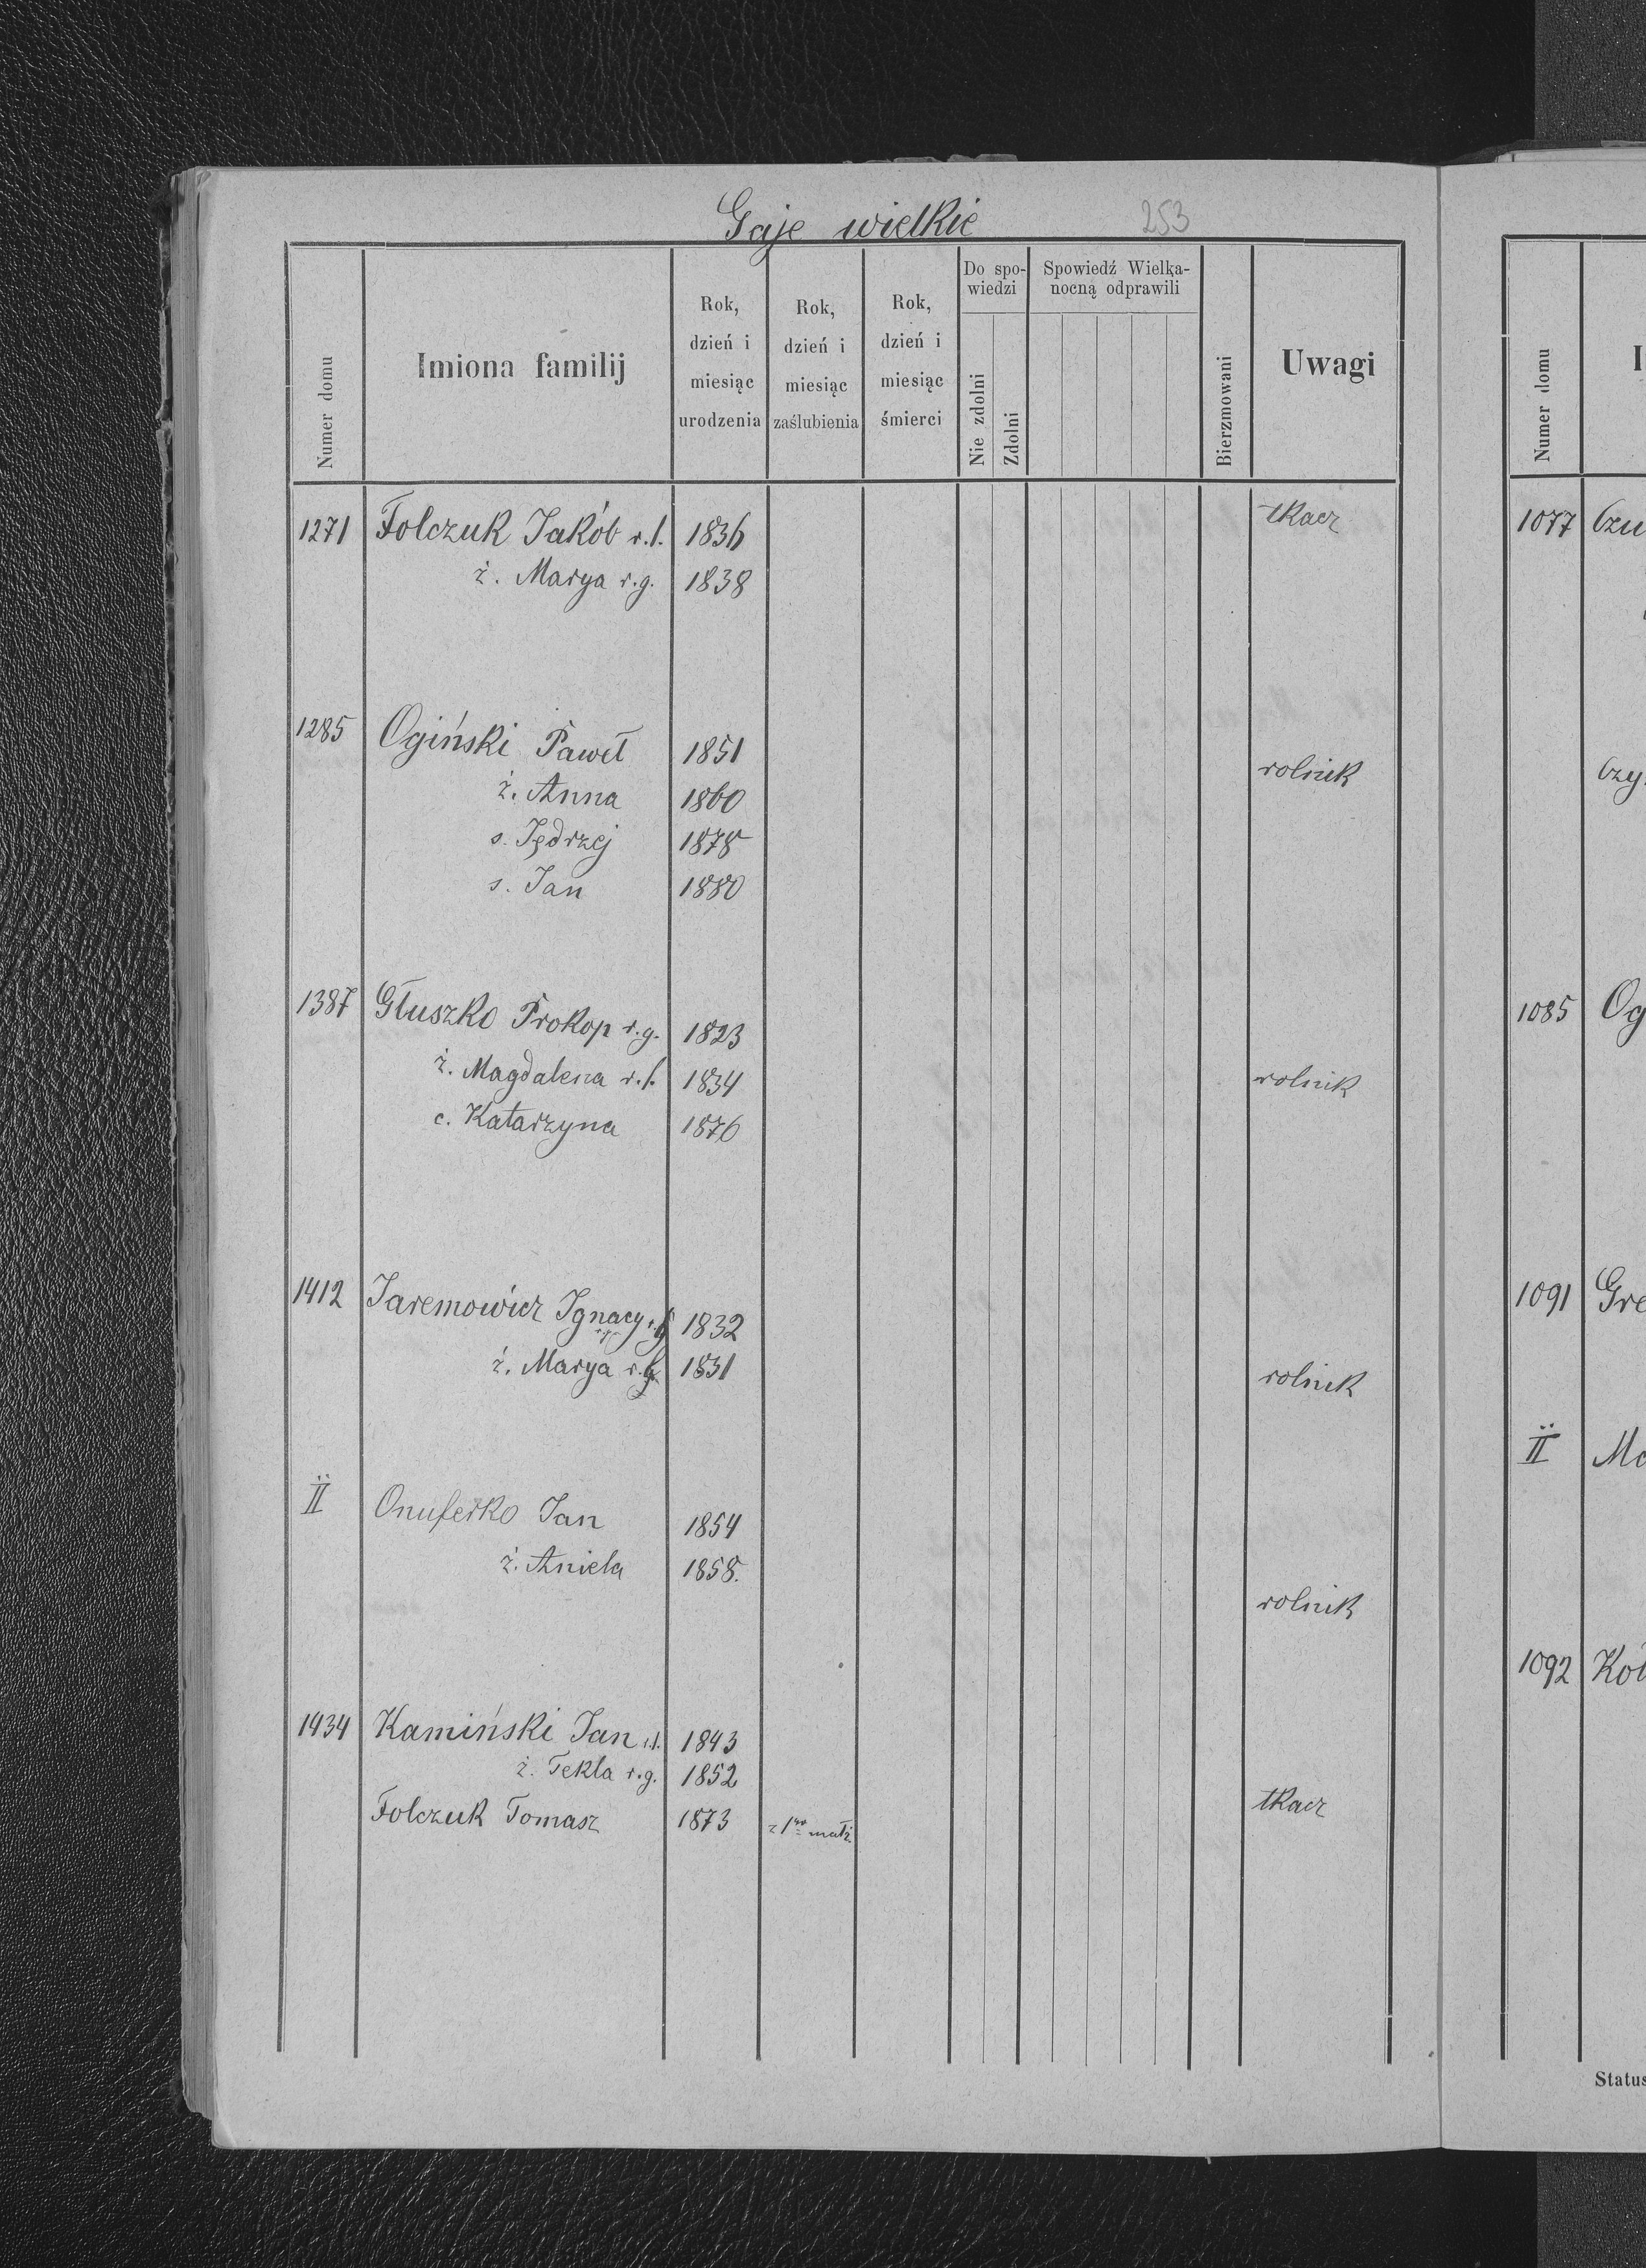 Gaje wielkie 253
Numer domu
Imiona familij
Rok,
dzień i
miesiąc
urodzenia
Rok,
dzień i
miesiąc
zaślubienia
Rok,
dzień i
miesiąc
śmierci
Do spo-
wiedzi
Nie zdolni
Zdolni
Spowiedź Wielka-
nocną odprawili
Bierzmowani
Uwagi
1271 Folczuk Jakób r.l. 1836 tkacz
ż. Marya r.g. 1838
1285 Ogiński Paweł 1851 rolnik
ż. Anna 1860
s. Jędrzej 1878
s. Jan 1880
1387 Głuszko Prokop r.g. 1823
ż. Magdalena r.l. 1834 rolnik
c. Katarzyna 1876
1412 Jaremowicz Ignacy 1832
ż. Marya 1831 rolnik
II Onuferko Jan 1854
ż. Aniela 1858.
rolnik
1434 Kamiński Jan r.l. 1843
ż. Tekla r.g. 1852
Folczuk Tomasz 1873 z 1go małż. tkacz
Numer domu
I
1077 Czu
Czy
1085 Og
1091 Gre
II Mo
1092
Status